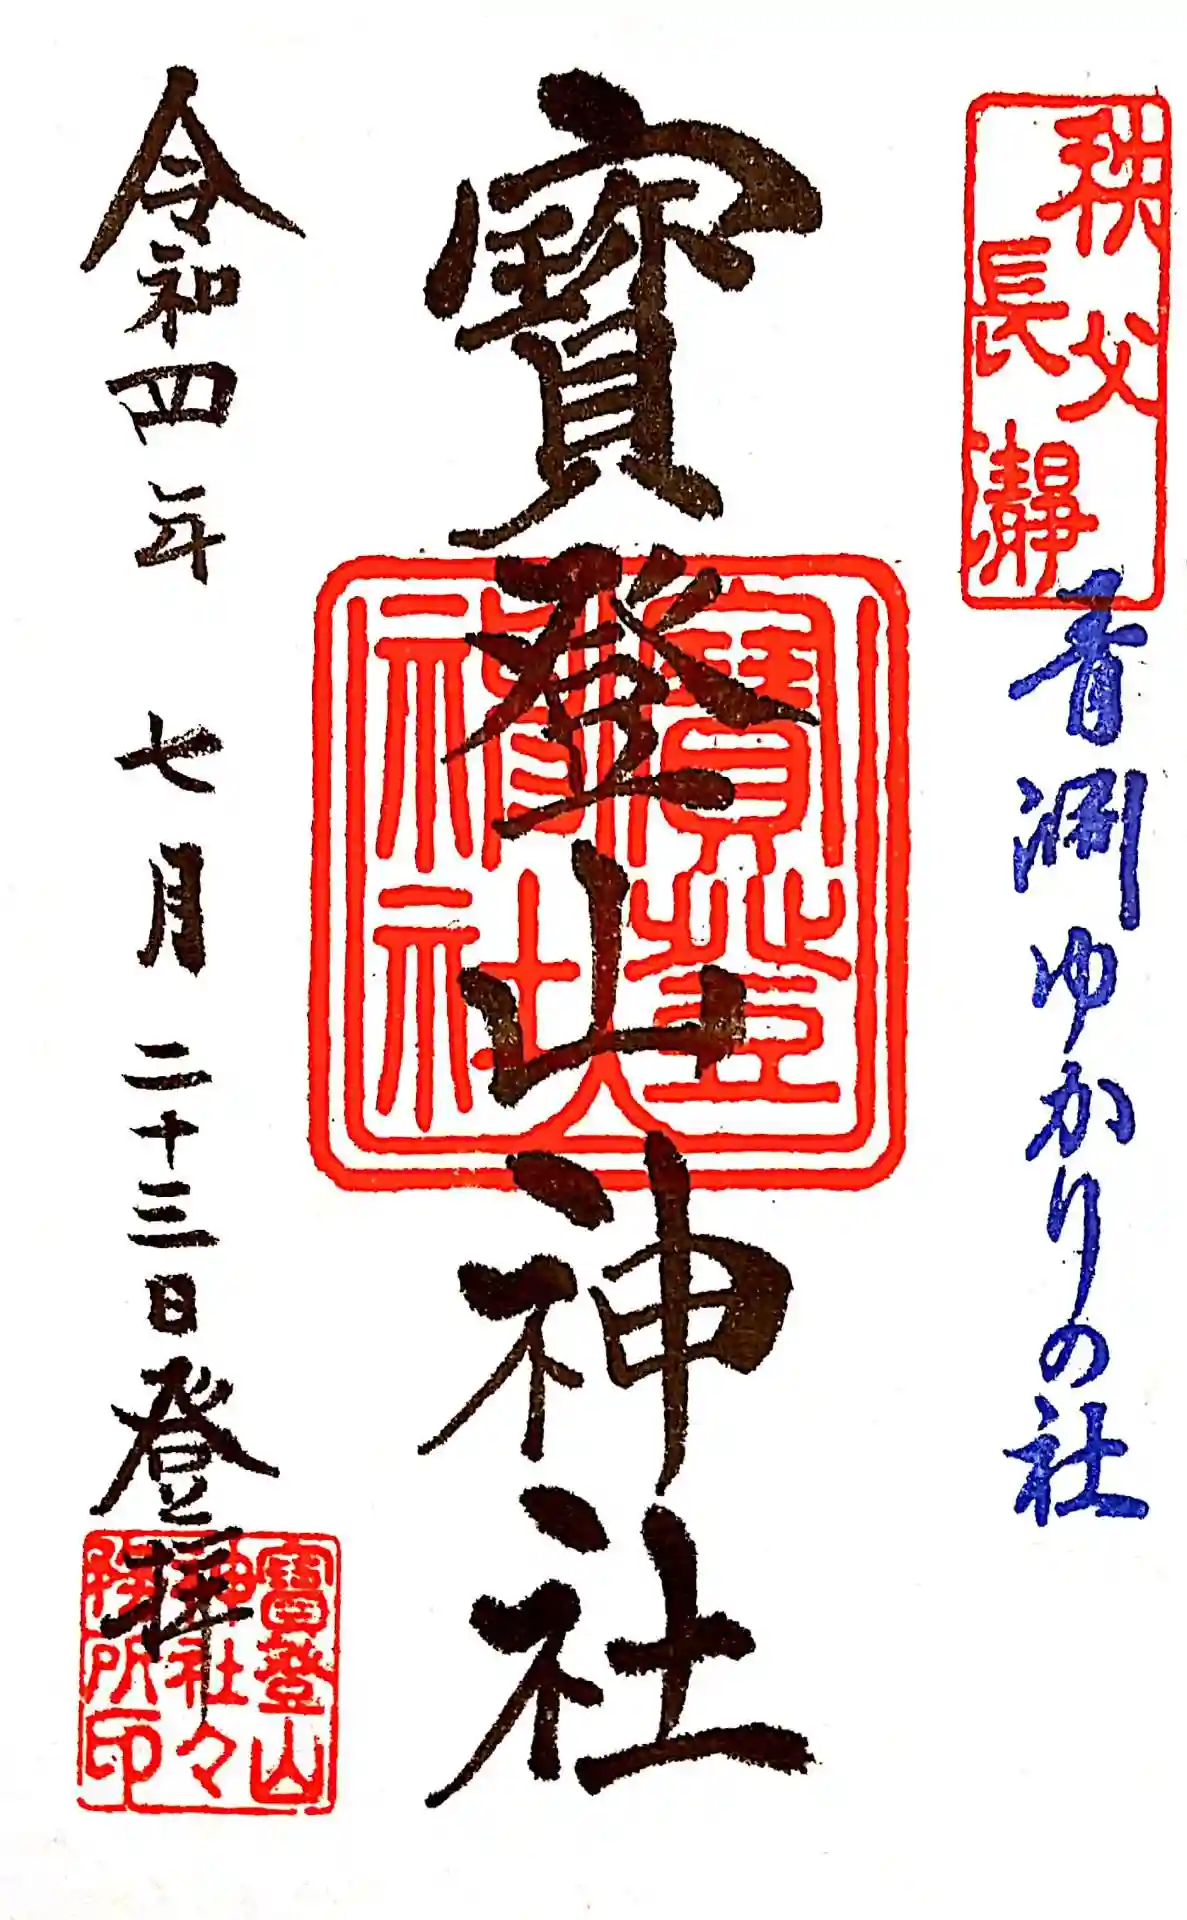 秩父
長瀞
青淵ゆかりの社
寳登山神社
寳登山
神社
令和四年 七月 二十三日 登拝
寳登山
神社々
務所印